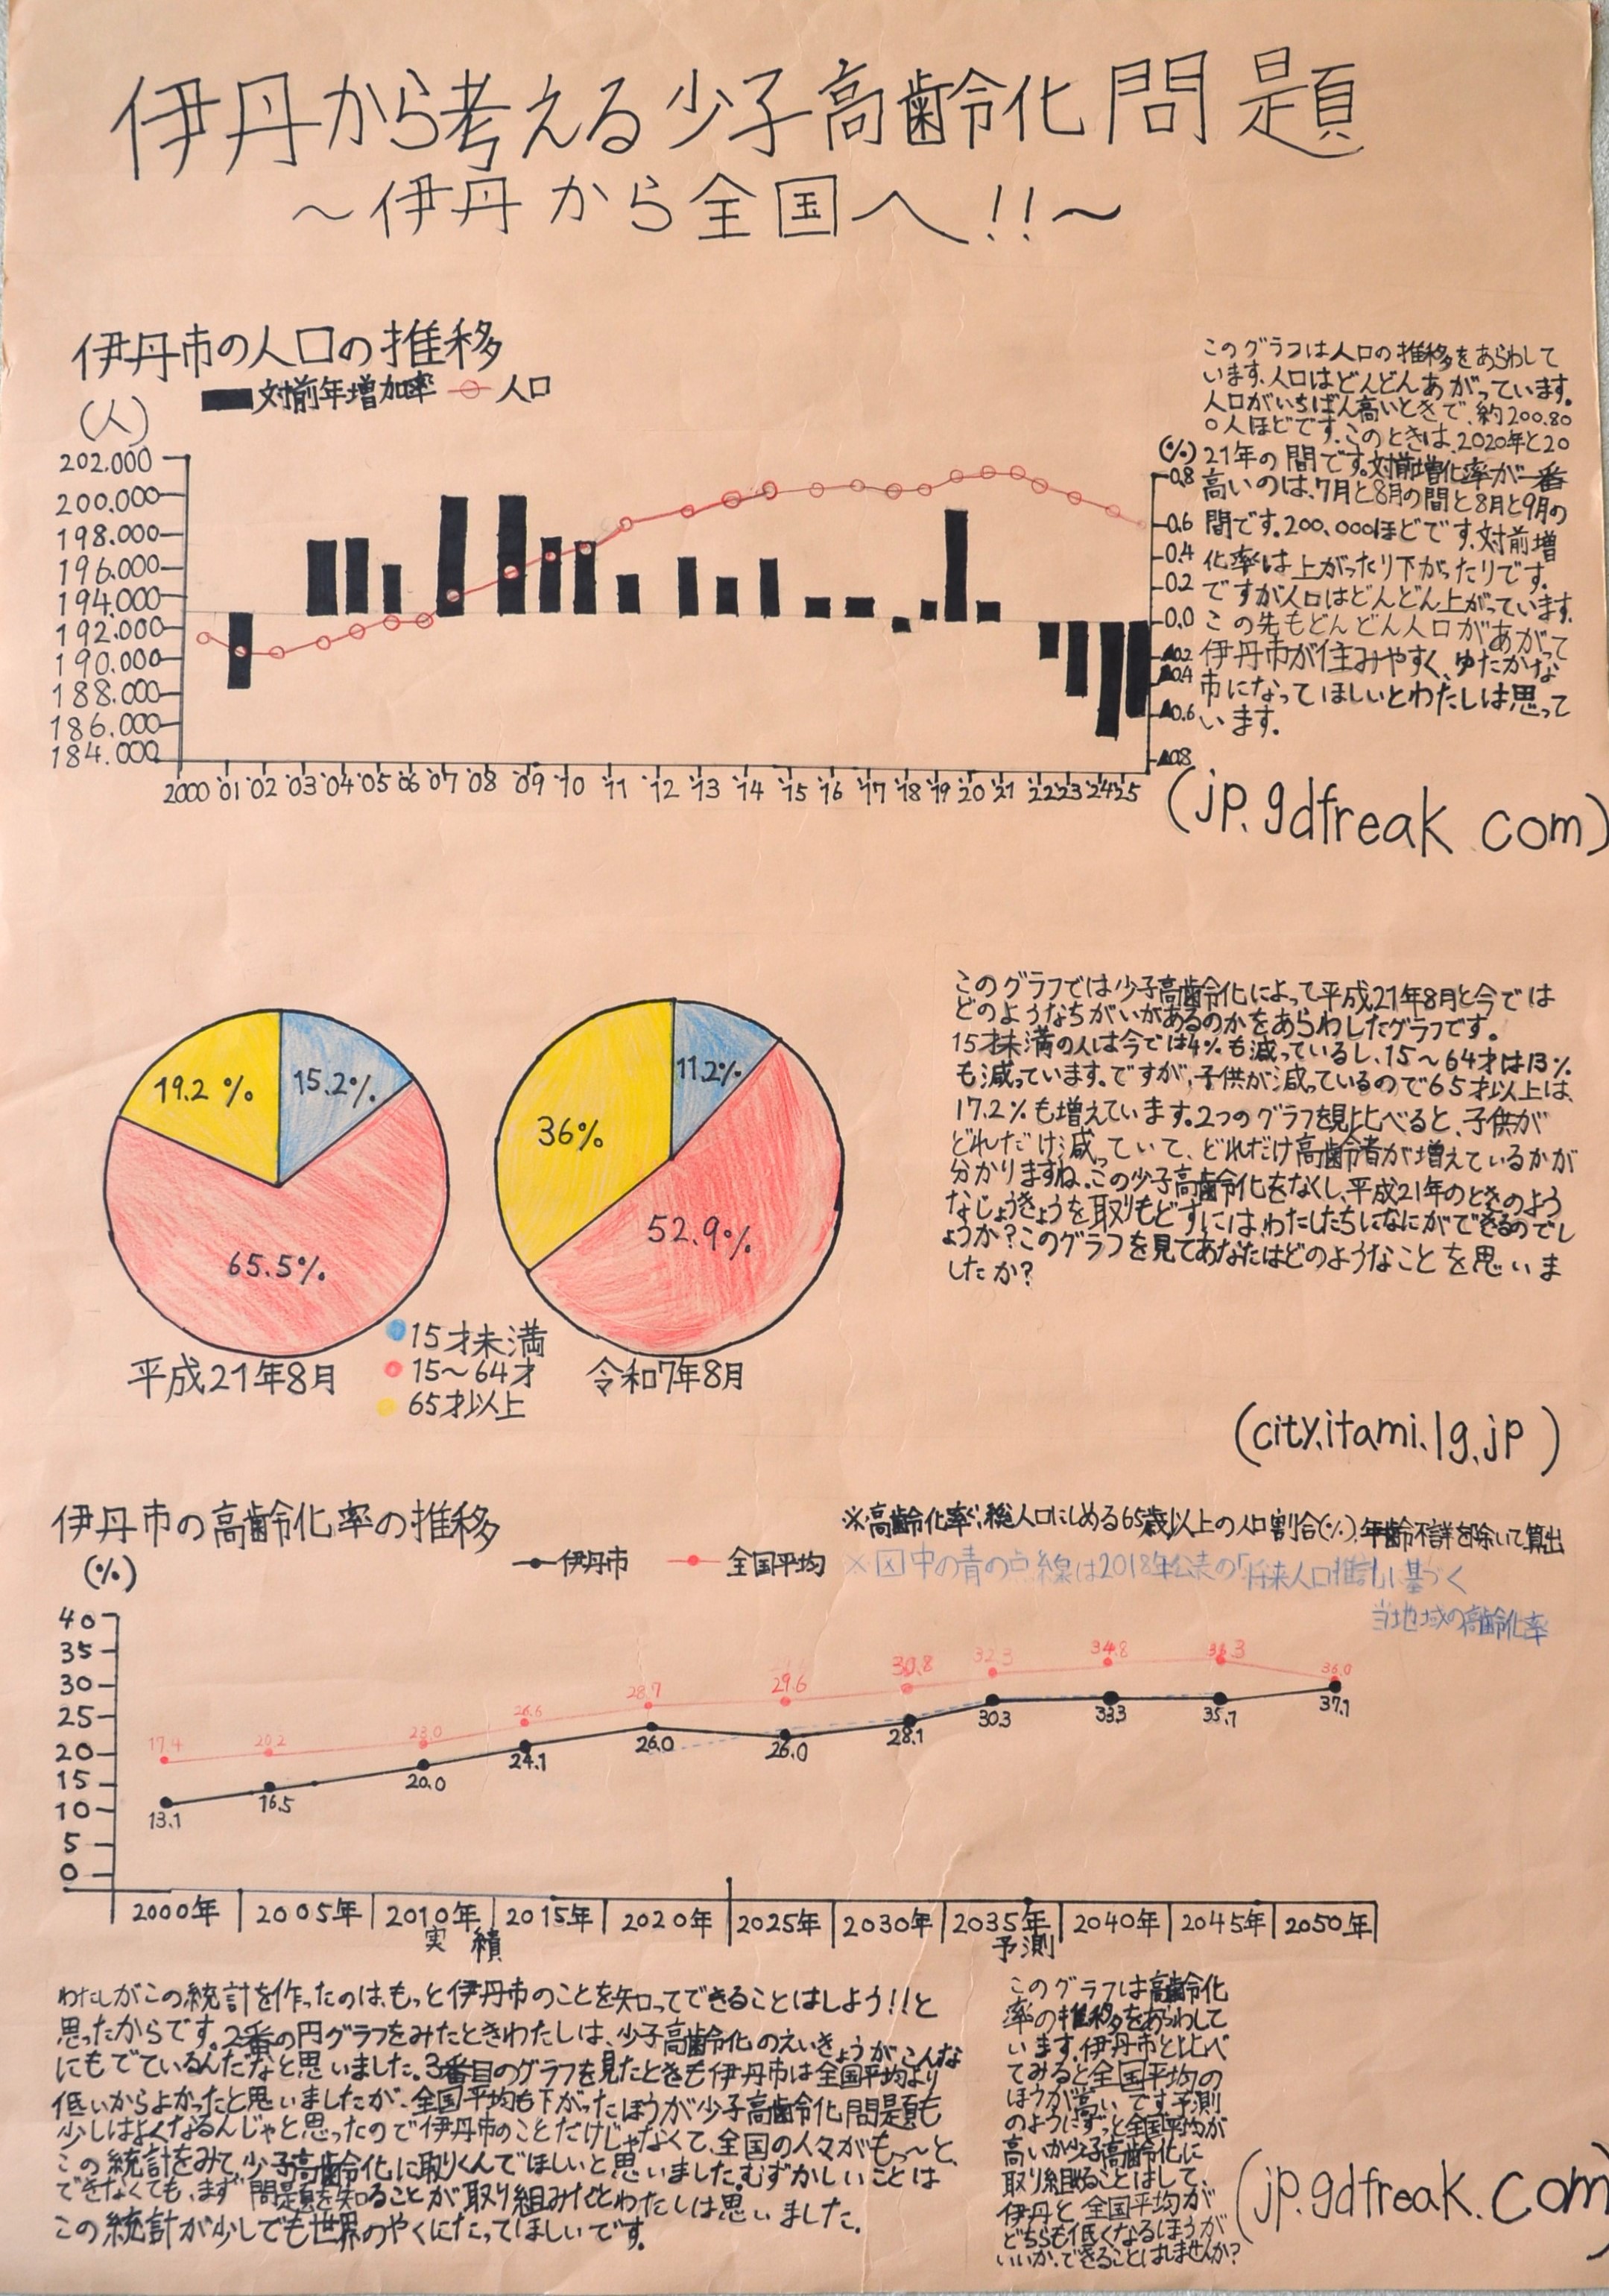 伊丹から考える少子高齢化問題
～伊丹から全国へ!!～
伊丹市の人口の推移
対前年増加率 人口
(人)
202.000
200.000
198.000
196.000
194.000
192.000
190.000
188.000
186.000
184.000
2000 '01 '02 '03 '04 '05 '06 '07 '08 '09 '10 '11 '12 '13 '14 '15 '16 '17 '18 '19 '20 '21 '22 '23 '24 '25
(%)
0.8
0.6
0.4
0.2
0.0
▲0.2
▲0.4
▲0.6
▲0.8
このグラフは人口の推移をあらわして
います。人口はどんどんあがっています。
人口がいちばん高いときで、約200.80
0人ほどです。このときは、2020年と20
21年の間です。対前増化率が一番
高いのは、7月と8月の間と8月と9月の
間です。200,000ほどです。対前増
化率は上がったり下がったりです。
ですが人口はどんどん上がっています。
この先もどんどん人口があがって
伊丹市が住みやすく、ゆたかな
市になってほしいとわたしは思って
います。
(jp.gdfreak.com)
19.2% 15.2%
65.5%
平成21年8月
36% 11.2%
52.9%
令和7年8月
15才未満
15～64才
65才以上
このグラフでは少子高齢化によって平成21年8月と今では
どのようなちがいがあるのかをあらわしたグラフです。
15才未満の人は今では4%も減っているし、15～64才は13%
も減っています。ですが、子供が減っているので65才以上は、
17.2%も増えています。2つのグラフを見比べると、子供が
どれだけ減っていて、どれだけ高齢者が増えているかが
分かりますね。この少子高齢化をなくし、平成21年のときのよう
なじょうきょうを取りもどすには、わたしたちになにができるのでし
ょうか?このグラフを見てあなたはどのようなことを思いま
したか?
(city.itami.lg.jp)
伊丹市の高齢化率の推移
(%)
伊丹市 全国平均
※高齢化率:総人口にしめる65歳以上の人口割合(%)、年齢不詳を除いて算出
※図中の青の点線は2018年公表の「将来人口推計」に基づく
当地域の高齢化率
40
35
30
25
20
15
10
5
0
17.4 20.2 23.0 26.6 28.7 29.6 30.8 32.3 34.8 36.3 36.0
13.1 16.5 20.0 24.1 26.0 26.0 28.1 30.3 33.3 35.7 37.1
2000年 2005年 2010年 2015年 2020年 2025年 2030年 2035年 2040年 2045年 2050年
実績 予測
わたしがこの統計を作ったのは、もっと伊丹市のことを知ってできることはしよう!!と
思ったからです。2番の円グラフをみたときわたしは、少子高齢化のえいきょうがこんな
にもでているんだなと思いました。3番目のグラフを見たときも伊丹市は全国平均より
低いからよかったと思いましたが、全国平均も下がったほうが少子高齢化問題も
少しはよくなるんじゃと思ったので伊丹市のことだけじゃなくて、全国の人々がも〜っと、
この統計をみて少子高齢化に取りくんでほしいと思いました。むずかしいことは
できなくても、まず問題を知ることが取り組みだとわたしは思いました。
この統計が少しでも世界のやくにたってほしいです。
このグラフは高齢化
率の推移をあらわして
います。伊丹市と比べ
てみると全国平均の
ほうが高いです。予測
のようにずっと全国平均が
高いか少子高齢化に
取り組むことはして、
伊丹と、全国平均が
どちらも低くなるほうが
いいか。できることはしませんか?
(jp.gdfreak.com)